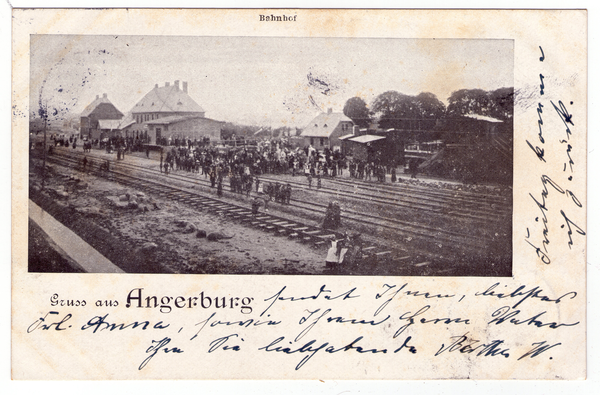 Bahnhof
Gruss aus Angerburg sendet Ihnen, liebstes
Frl. Anna, sowie Ihrem Herrn Vater
Ihn Sie liebhabende Berthe W.
Freitag komme
ich zurück.